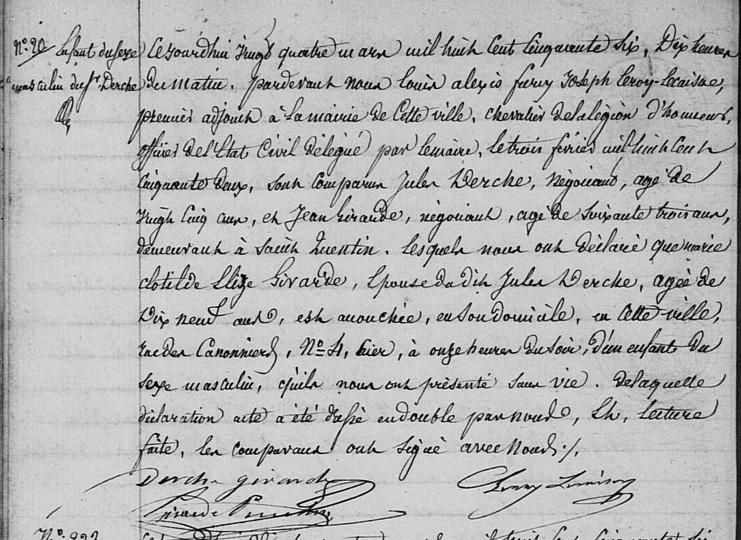 N° 20 Enfant du sexe
masculin du Sr Derche
Cejourdhui vingt quatre mars mil huit cent cinquante six, Dix heures
du matin. Pardevant nous louis alexis furcy Joseph leroy-Lecaisne,
premier adjoint à La mairie de Cette ville, chevalier de la légion d'honneur,
officier de l'Etat Civil délégué par lemaire, le trois février mil huit Cent
Cinquante deux, sont Comparus Jules Derche, Négociant, agé de
vingt Cinq ans, et Jean Girarde, négociant, agé de Soixante trois ans,
demeurant à Saint Quentin. Lesquels nous ont déclaré que marie
clotilde Elize Girarde, Epouse dudit Jules Derche, agée de
Dix neuf ans, est accouchée, en Son domicile, en Cette ville,
rue des Canonniers, N° 4, hier, à onze heures du soir, d'un enfant du
sexe masculin, qu'ils nous ont présenté sans vie. de laquelle
déclaration acte a été dressé en double par nous, Et, lecture
faite, les comparans ont signé avec Nous ./.
Derche girarde
Girarde
N°